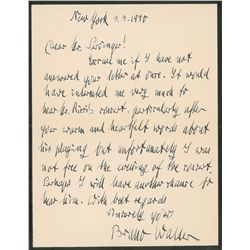 New York 3.3.1940
Dear Mr. Persinger!
Excuse me if I have not
answered your letter at once. It would
have interested me very much to
hear Mr. concert, particularly after
your warm and heartfelt words about
his playing but unfortunately I was
not free on the evening of the concert.
Perhaps I will have another chance to
hear him. With best regards
sincerely yours
Bruno Walter